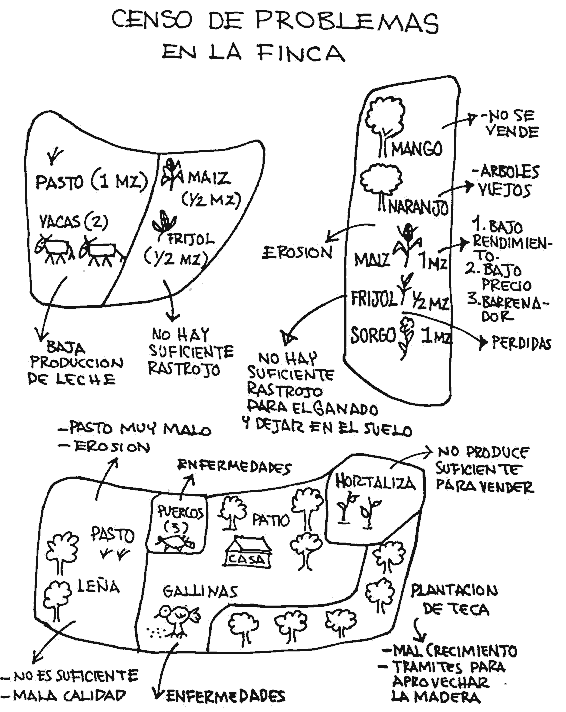 CENSO DE PROBLEMAS
EN LA FINCA
PASTO (1 MZ)
VACAS (2)
MAIZ
(1/2 MZ)
FRIJOL
(1/2 MZ)
BAJA
PRODUCCION
DE LECHE
NO HAY
SUFICIENTE
RASTROJO
MANGO
- NO SE
VENDE
NARANJO
- ARBOLES
VIEJOS
EROSION
MAIZ 1 MZ
1. BAJO
RENDIMIEN-
TO.
2. BAJO
PRECIO
3. BARRENA-
DOR
FRIJOL 1/2 MZ
SORGO 1 MZ
PERDIDAS
NO HAY
SUFICIENTE
RASTROJO
PARA EL GANADO
Y DEJAR EN EL SUELO
- PASTO MUY MALO
- EROSION
ENFERMEDADES
NO PRODUCE
SUFICIENTE
PARA VENDER
PUERCOS
(3)
PATIO
HORTALIZA
PASTO
CASA
LEÑA
GALLINAS
PLANTACION
DE TECA
- NO ES SUFICIENTE
- MALA CALIDAD
ENFERMEDADES
- MAL CRECIMIENTO
- TRAMITES PARA
APROVECHAR
LA MADERA